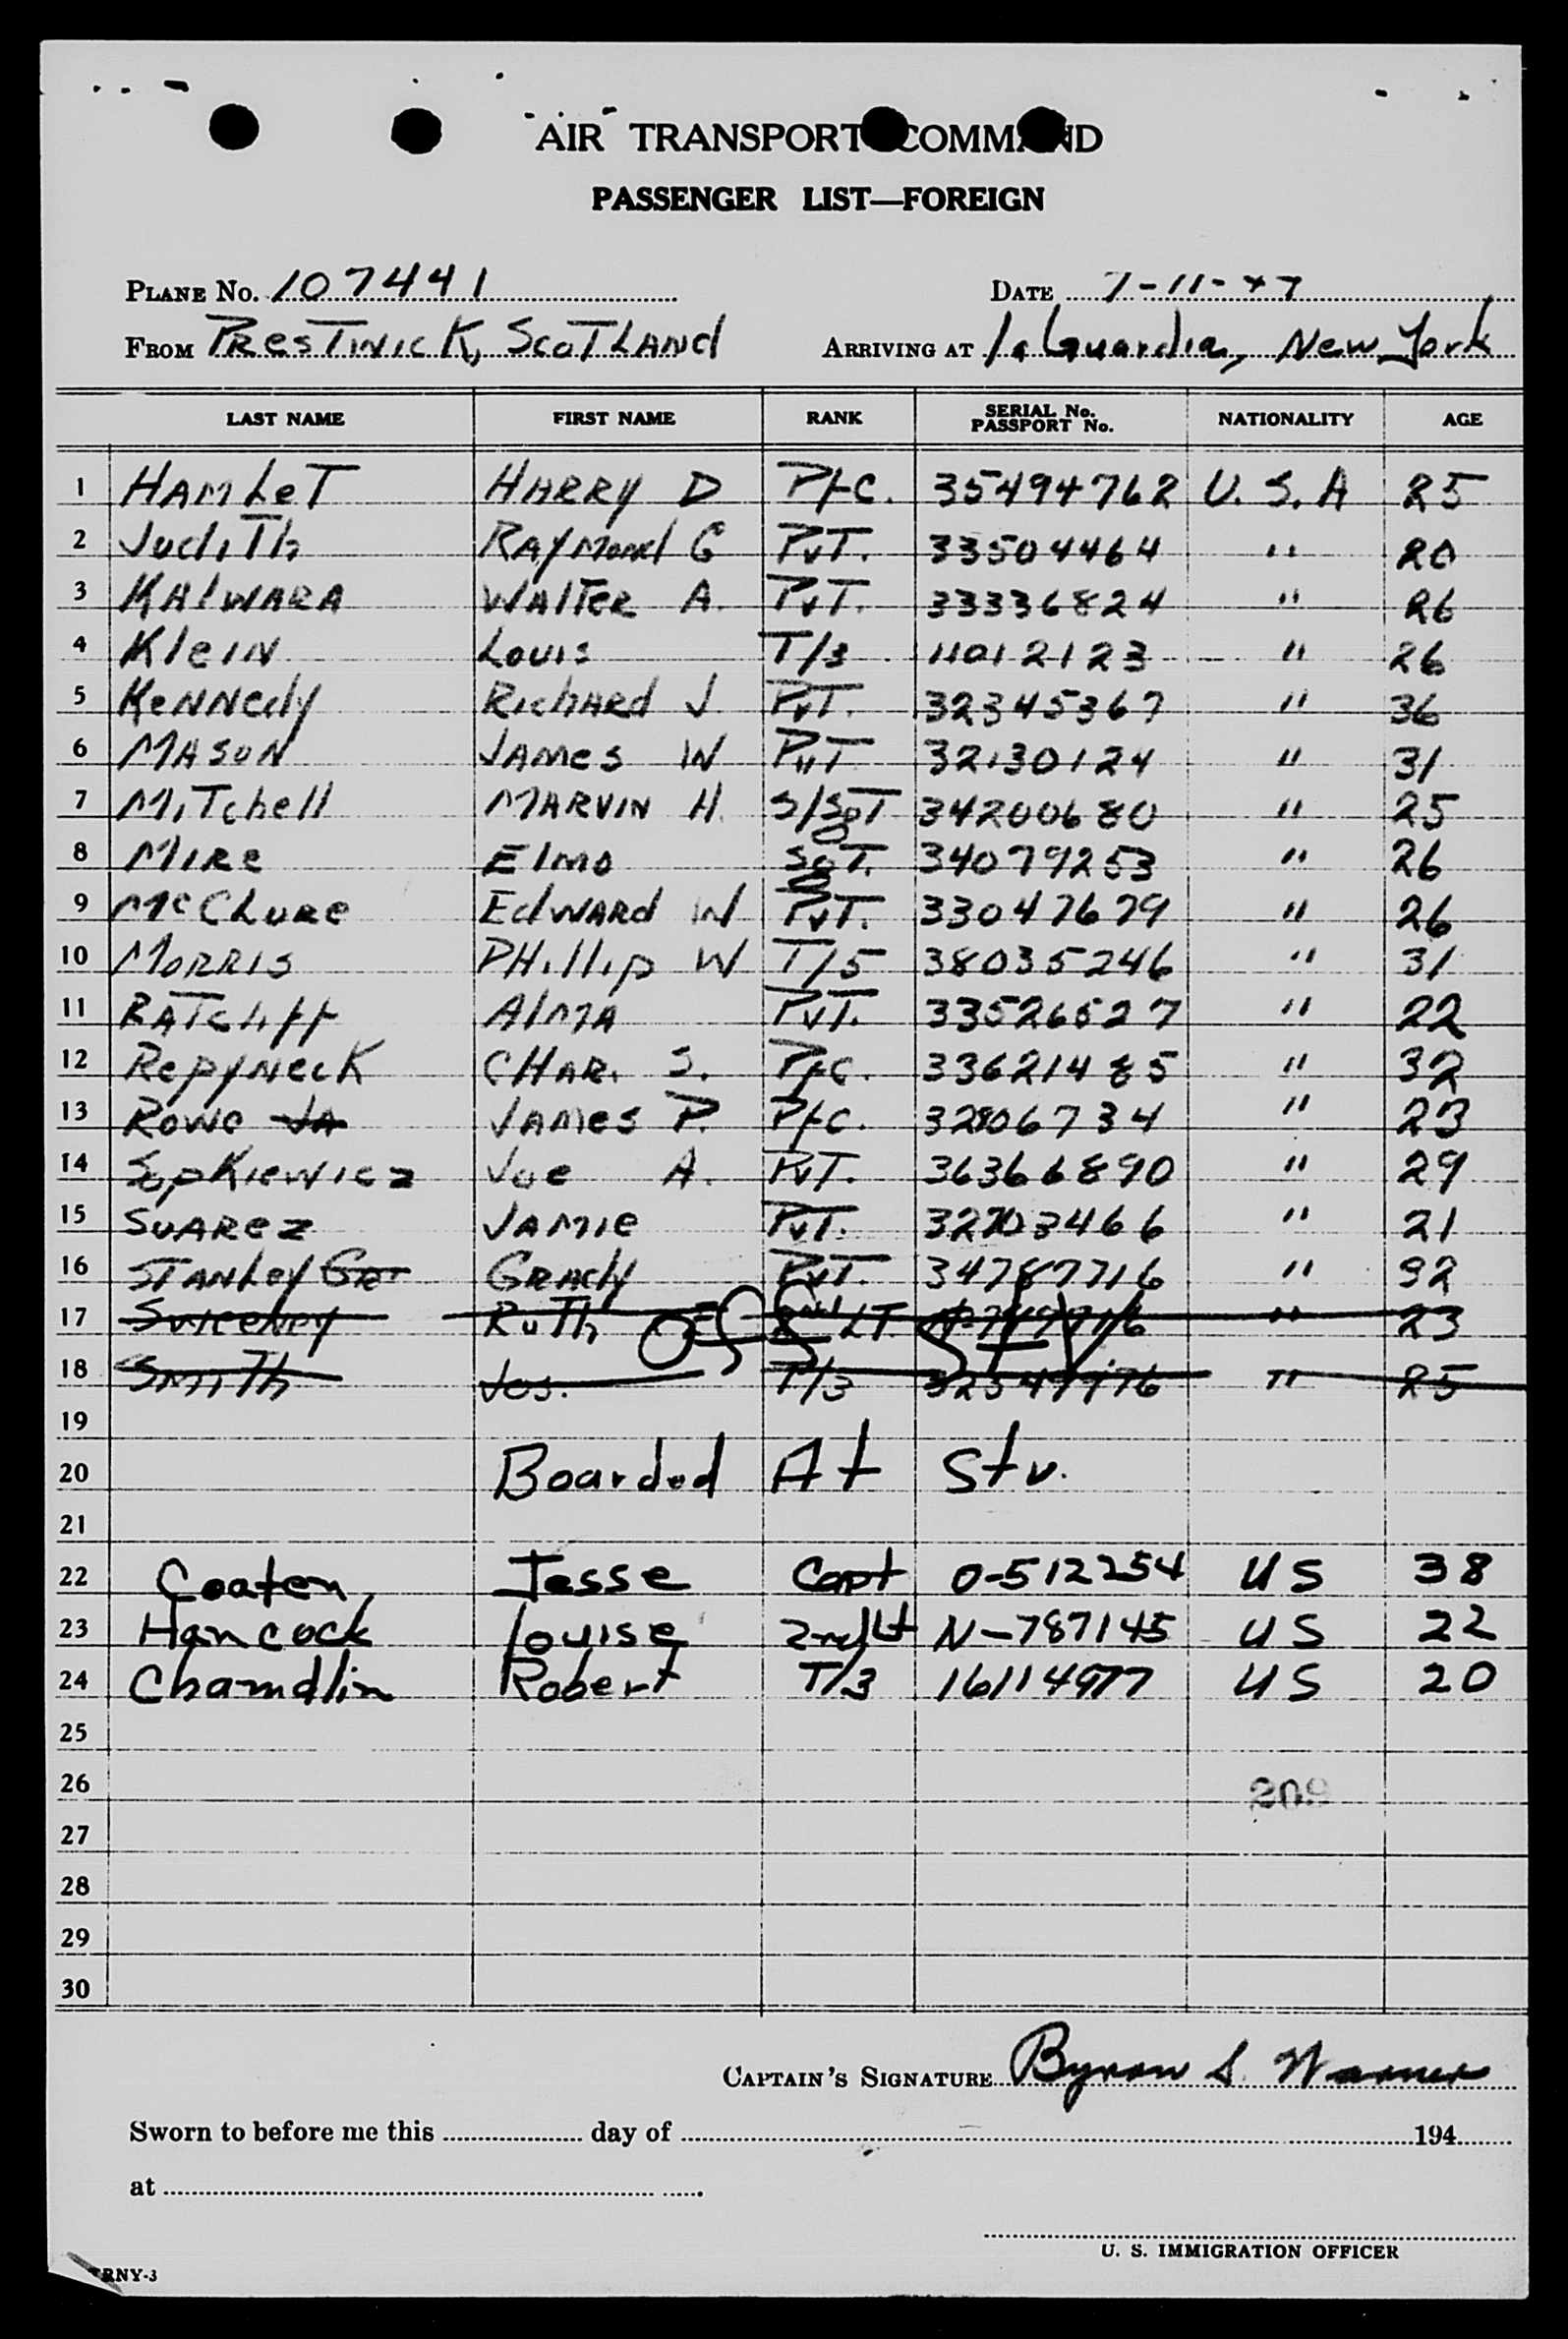 AIR TRANSPORT COMMAND
PASSENGER LIST—FOREIGN
PLANE No. 107441 DATE 7-11-47
FROM PRESTWICK, SCOTLAND ARRIVING AT La Guardia, New York
LAST NAME FIRST NAME RANK SERIAL No. PASSPORT No. NATIONALITY AGE
1 HAMLET HARRY D Pfc. 35494762 U.S.A 25
2 Judith RAYMOND G PvT. 33504464 " 20
3 KALWARA WALTER A. PvT. 33336824 " 26
4 Klein Louis T/3 11012123 " 26
5 KENNedy RicHARd J. PvT. 32345367 " 36
6 MASON JAMES W PvT 32130124 " 31
7 MiTchell MARVIN H. S/SgT 34200680 " 25
8 MIRE Elmo SgT. 34079253 " 26
9 McCLURE EdWARd W PvT. 33047679 " 26
10 MORRIS PHillip W T/5 38035246 " 31
11 RATcliff AlMA PvT. 33526527 " 22
12 RepyNecK CHAR. S. Pfc. 33621485 " 32
13 Rowe JA JAMes P. Pfc. 32806734 " 23
14 SopKiewicz Joe A. PvT. 36366890 " 29
15 SUAREZ JAMIE PvT. 32703466 " 21
16 STANLey Gr GRAdy PvT. 34787716 " 32
17 Sweeney RuTh E 2nd LT. " 23
off Stv
18 SmiTh Jos. T/3 " 25
19
20 Boarded At Stv.
21
22 Coaten Jesse Capt O-512254 US 38
23 Hancock Louise 2nd Lt N-787145 US 22
24 Chamdlin Robert T/3 16114977 US 20
25
26 209
27
28
29
30
CAPTAIN'S SIGNATURE Byron S. Warner
Sworn to before me this day of 194
at
U. S. IMMIGRATION OFFICER
RNY-3